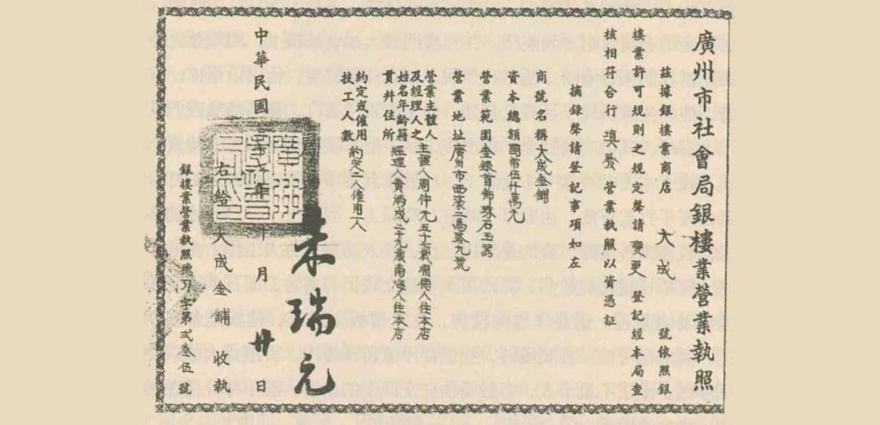 廣州市社會局銀樓業營業執照
茲據銀樓業商店 大成 號依照銀
樓業許可規則之規定聲請 變更 登記經本局查
核相符合行 填发 營業執照以資憑証
摘錄聲請登記事項如左
商號名稱 大成金鋪
資本總額 國幣伍仟萬元
營業範圍 金銀首飾珠石玉器
營業地址 廣州市
營業主體人
及經理人之
姓名年齡籍
貫并住所
主體人周仲九五十六歲順德人住本店
經理人黃滿成二十九歲南海人住本店
約定或僱用
技工人數
約定二人僱用一人
中華民國 年 十 月 廿 日
朱瑞元
右給 大成金鋪 收執
銀樓業營業執照 字第 弍叁伍 號